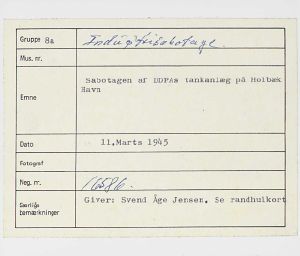 Gruppe 8a Industrisabotage.
Mus. nr.
Sabotagen af DDPAs tankanlæg på Holbæk
Emne Havn
Dato 11.Marts 1945
Fotograf
Neg. nr. 16586.
Særlige bemærkninger Giver: Svend Åge Jensen. Se randhulkort